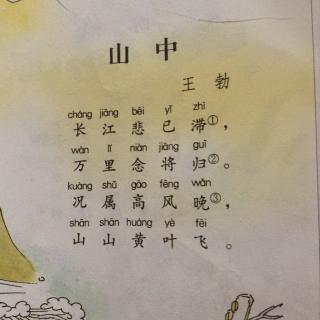 山中
王勃
cháng jiāng bēi yǐ zhì
长江悲已滞①，
wàn lǐ niàn jiāng guī
万里念将归②。
kuàng shǔ gāo fēng wǎn
况属高风晚③，
shān shān huáng yè fēi
山山黄叶飞。